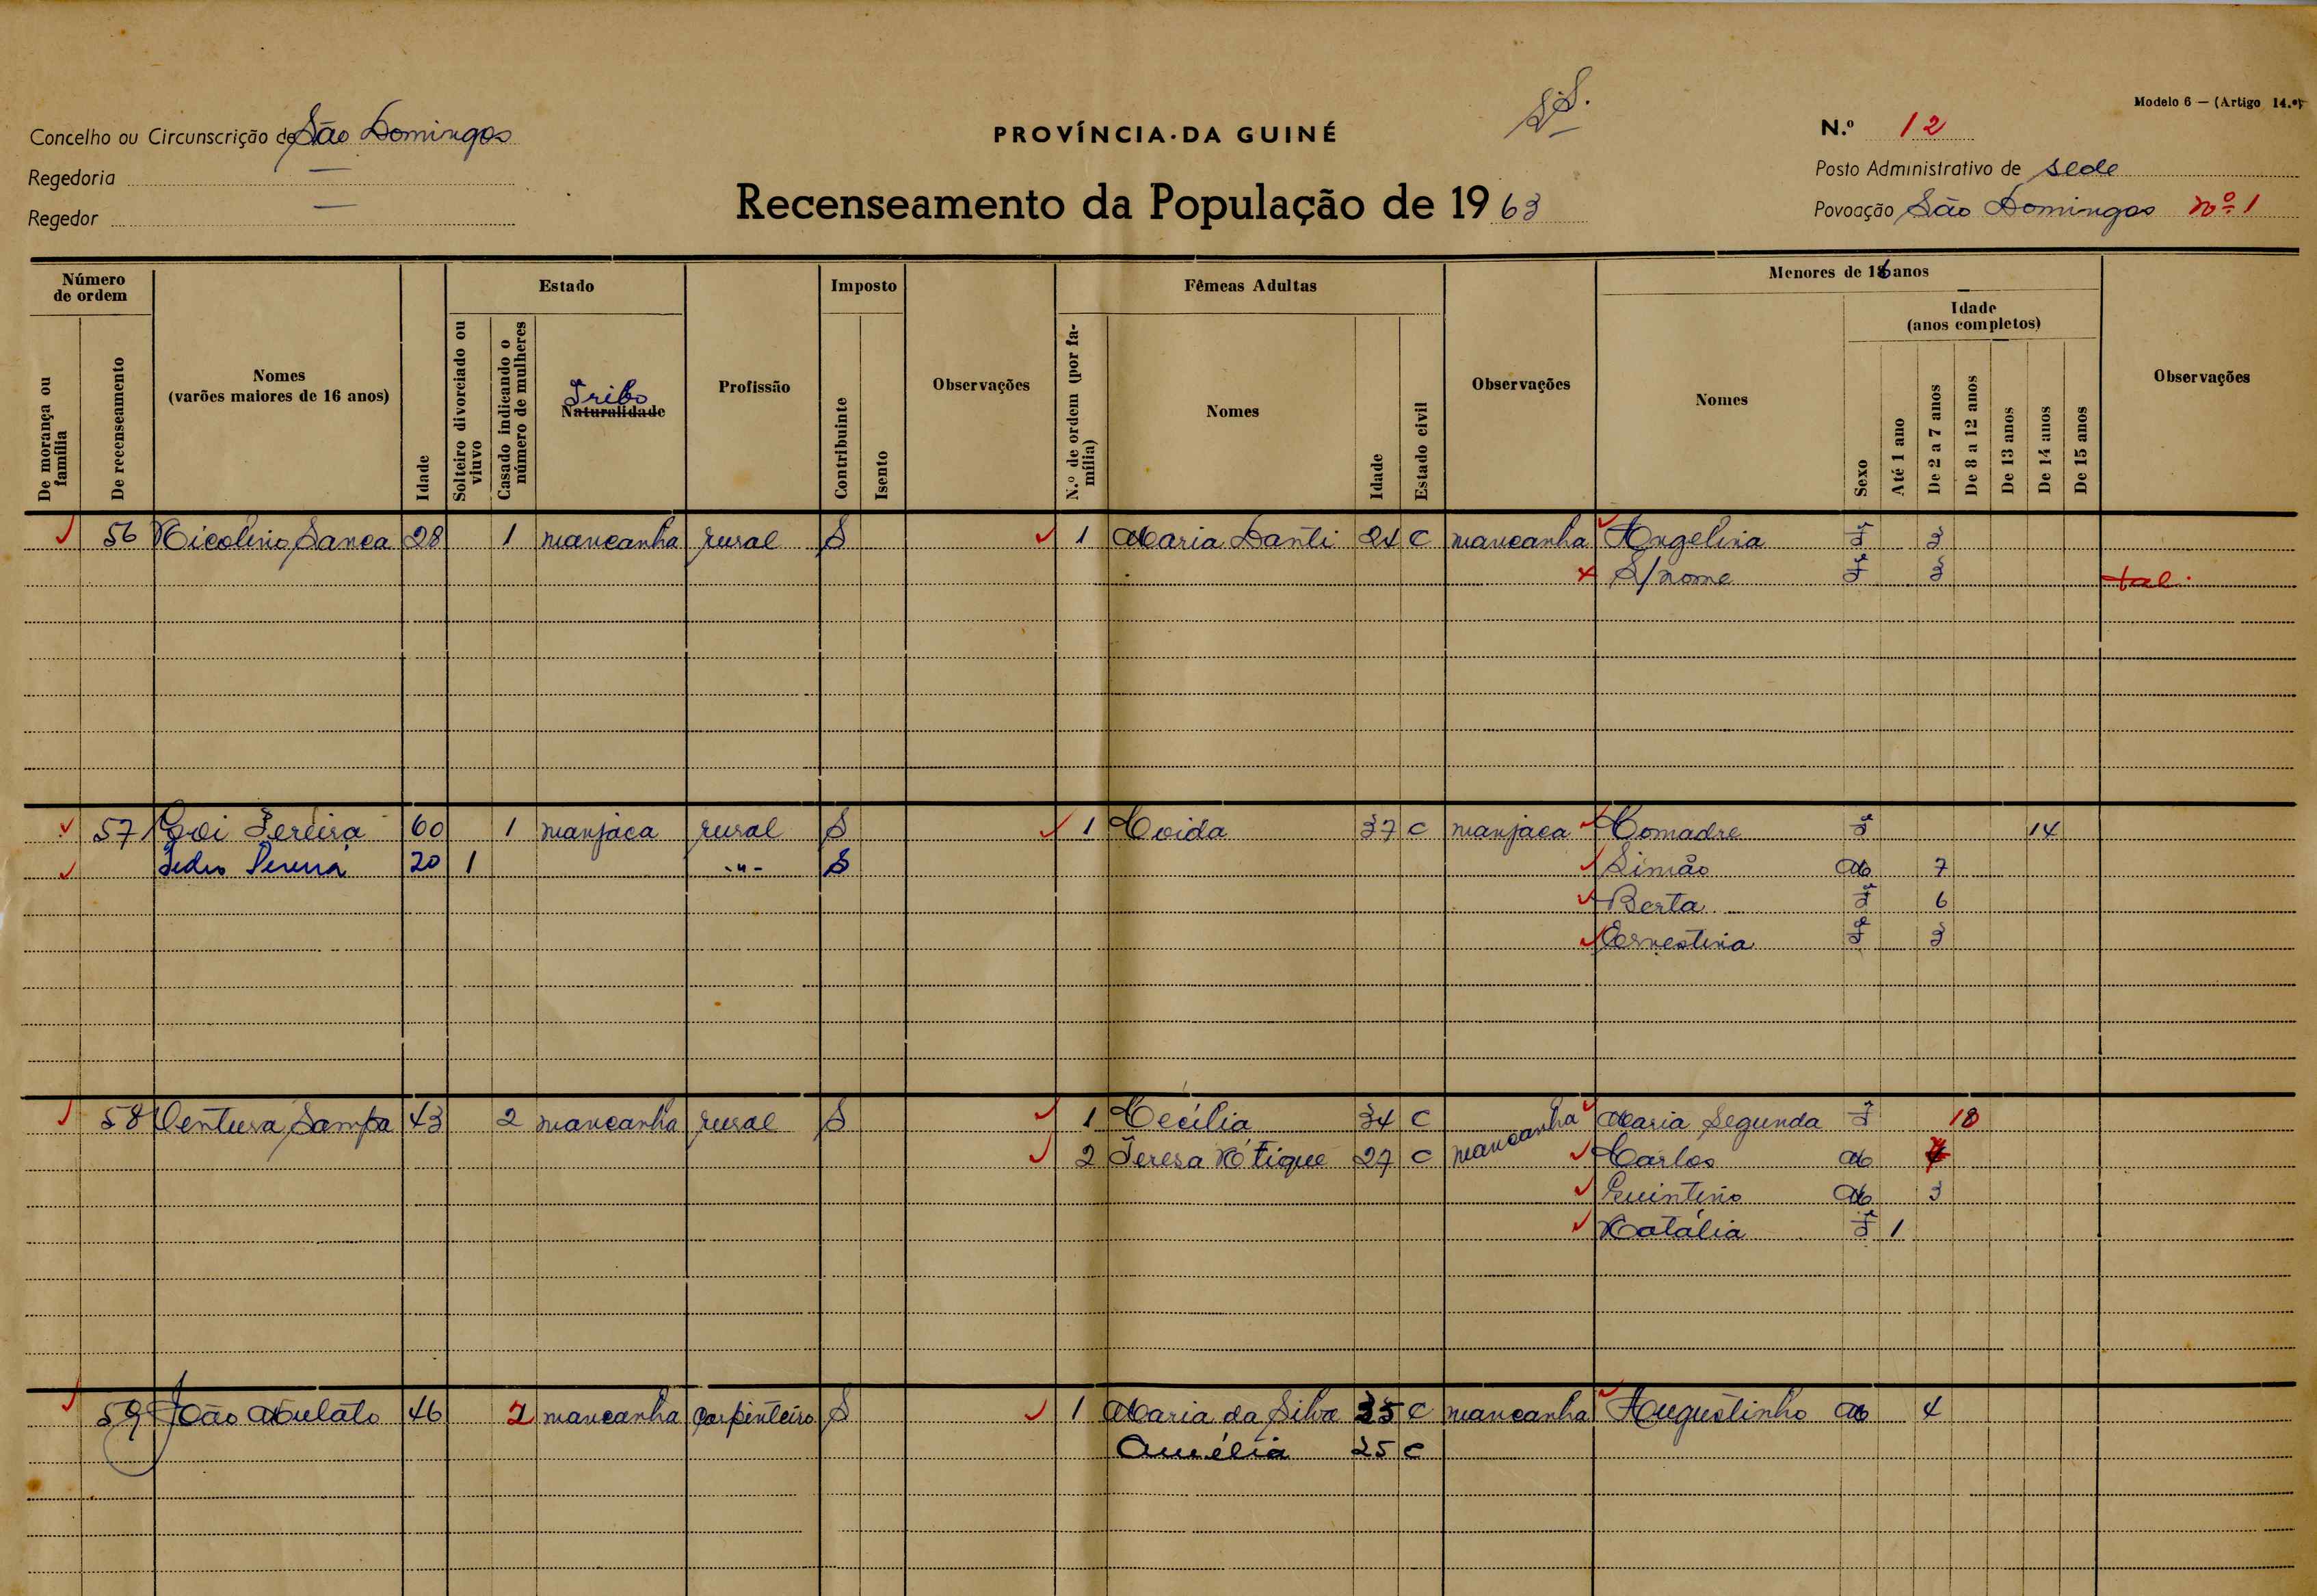 Modelo 6 — (Artigo 14.º)
Concelho ou Circunscrição de São Domingos
PROVÍNCIA DA GUINÉ
N.º 12
Regedoria —
Posto Administrativo de sede
Regedor —
Recenseamento da População de 1963
Povoação São Domingos nº 1
Número de ordem
Estado
Imposto
Fêmeas Adultas
Menores de 16 anos
Idade (anos completos)
De morança ou família
De recenseamento
Nomes (varões maiores de 16 anos)
Idade
Solteiro divorciado ou viuvo
Casado indicando o número de mulheres
Tribo
Naturalidade
Profissão
Contribuinte
Isento
Observações
N.º de ordem (por família)
Nomes
Idade
Estado civil
Observações
Nomes
Sexo
Até 1 ano
De 2 a 7 anos
De 8 a 12 anos
De 13 anos
De 14 anos
De 15 anos
Observações
56 Nicolino Sanca 28 1 mancanha rural S 1 Maria Danti 24 C mancanha Angelina F 3
S/nome F 3 fal.
57 Pereira 60 1 manjaca rural S 1 37 C manjaca Comadre F 14
Pedro Pereira 20 1 -"- S Simão M 7
Berta F 6
Ernestina F 3
58 Ventura Sampa 43 2 mancanha rural S 1 Cecília 34 C mancanha Maria Segunda F 10
2 Teresa N'Tique 27 C Carlos M
Quintino M 3
Natália F 1
59 João Mulato 46 2 mancanha carpinteiro S 1 Maria da Silva 35 C mancanha Augustinho M 4
Amélia 25 C